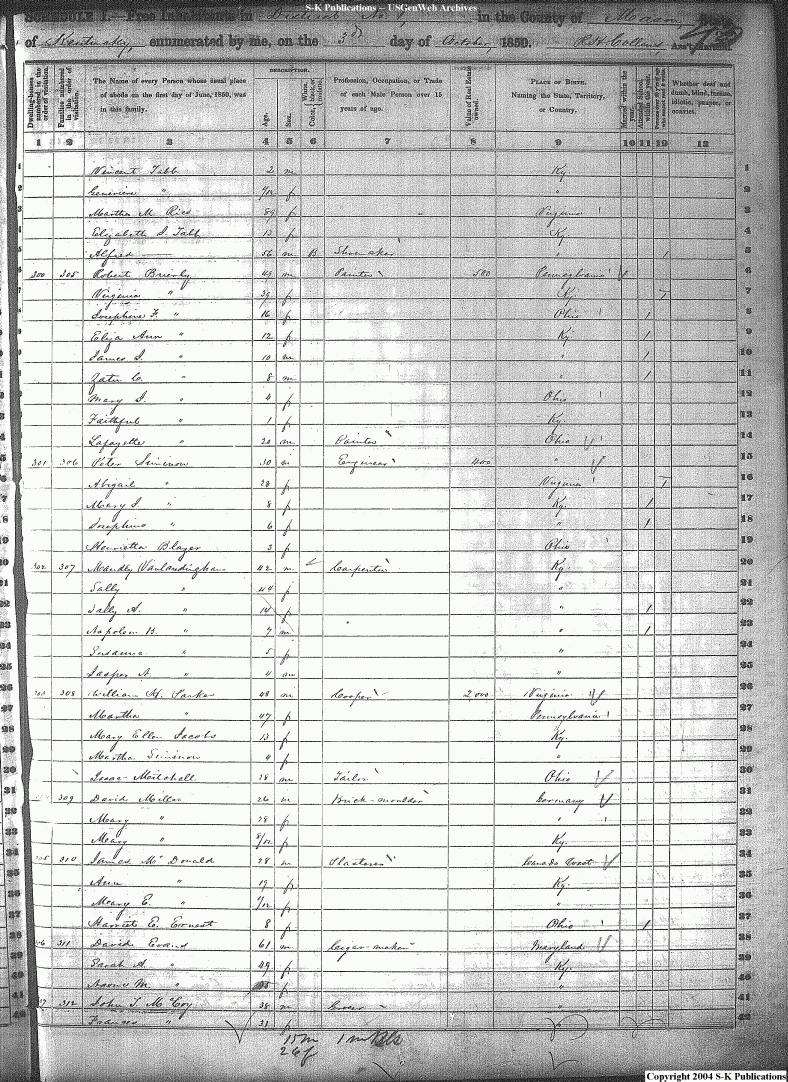 S-K Publications – USGenWeb Archives
SCHEDULE I.—Free Inhabitants in District No. 1 in the County of Mason State
of Kentucky, enumerated by me, on the 3rd day of October, 1850. R H Collins Ass't Marshal.
Dwelling-houses numbered in the order of visitation.
Families numbered in the order of visitation.
The Name of every Person whose usual place of abode on the first day of June, 1850, was in this family.
DESCRIPTION.
Age.
Sex.
White, black, or mulatto.
Color,
Profession, Occupation, or Trade of each Male Person over 15 years of age.
Value of Real Estate owned.
PLACE OF BIRTH. Naming the State, Territory, or Country.
Married within the year.
Attended School within the year.
Whether deaf and dumb, blind, insane, idiotic, pauper, or convict.
1 2 3 4 5 6 7 8 9 10 11 12 13
1 Vincent Tabb 2 m Ky 1
2 Genevieve " /12 f " 2
3 Martha M. Rice 89 f Virginia 3
4 Elizabeth S. Tabb 13 f Ky 4
5 Alfred —— 56 m B Shoemaker " 1 5
6 300 305 Robert Brierly 49 m Painter 500 Pennsylvania 6
7 Virginia " 39 f Ky. 1 7
8 Josephine F. " 16 f Ohio 1 8
9 Eliza Ann " 12 f Ky. 1 9
10 James S. " 10 m " 1 10
11 C. " 8 m " 1 11
12 Mary S. " 4 f Ohio 12
13 Faithful " 1 f Ky. 13
14 Lafayette " 20 m Painter Ohio 14
15 301 306 Peter Siminow 30 m Engineer 400 15
16 Abigail " 28 f Virginia 1 16
17 Mary S. " 8 f Ky. 1 17
18 Josephine " 6 f " 1 18
19 Henrietta Blazer 3 f Ohio 19
20 302 307 Mandly Vanlandingham 42 m Carpenter Ky 20
21 Sally " 44 f " 21
22 Sally A. " 14 f " 1 22
23 Napoleon B. " 7 m " 1 23
24 Susanna " 5 f " 24
25 Jasper A. " 4 m " 25
26 303 308 William H. Parker 48 m Cooper 2,000 Virginia 26
27 Martha " 47 f Pennsylvania 27
28 Mary Ellen Jacobs 13 f Ky. 28
29 Martha Siminow 4 f " 29
30 Isaac Mitchell 28 m Tailor Ohio 30
31 309 David Miller 26 m Brick-moulder Germany 31
32 Mary " 28 f " 32
33 Mary " 8/12 f Ky. 33
34 305 310 James McDonald 28 m Plasterer Canada West 34
35 Ann " 17 f Ky. 35
36 Mary E. " /12 f " 36
37 Harriet E. Earnest 8 f Ohio 1 37
38 306 311 David Evans 61 m Cigar-maker Maryland 38
39 Sarah A. " 49 f Ky. 39
40 Naomi M. " f " 40
41 307 312 John T. McCoy 38 m Grocer " 41
42 Frances " 31 f " 42
15 m 1 m Blk
26 f
Copyright 2004 S-K Publications